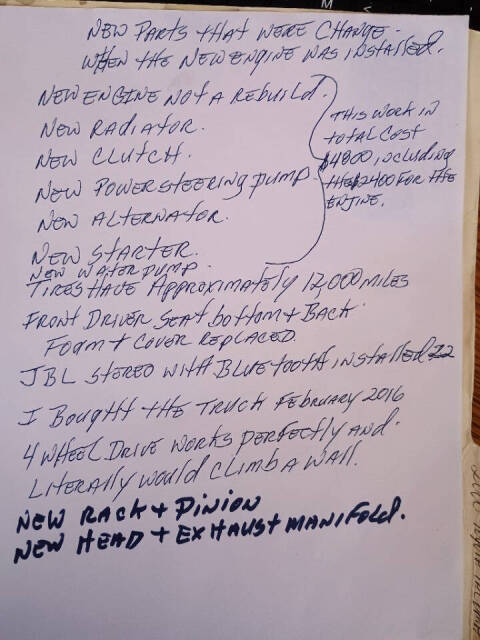 NEW PARTS THAT WERE CHANGE.
WHEN THE NEW ENGINE WAS INSTALLED.
NEW ENGINE NOT A REBUILD.
NEW RADIATOR.
NEW CLUTCH.
NEW POWER STEERING PUMP.
NEW ALTERNATOR.
NEW STARTER.
NEW WATER PUMP.
THIS WORK IN
TOTAL COST
$4800 INCLUDING
THE $2400 FOR THE
ENJINE.
TIRES HAVE APPROXIMATELY 12,000 MILES
FRONT DRIVER SEAT BOTTOM & BACK
FOAM & COVER REPLACED.
JBL STEREO WITH BLUETOOTH INSTALLED
I BOUGHT THE TRUCK FEBRUARY 2016
4 WHEEL DRIVE WORKS PERFECTLY AND.
LITERALLY WOULD CLIMB A WALL.
NEW RACK & PINION
NEW HEAD & EXHAUST MANIFOLD.